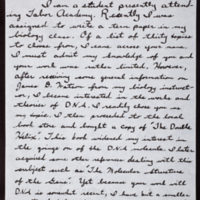 I am a student presently attend-
ing Tabor Academy. Recently I was
assigned to write a term paper in my
biology class. Of a list of thirty topics
to choose from, I came across your name.
I must admit my knowledge of you and
your work was rather limited. However,
after receiving some general information on
James D. Watson from my biology instruct-
or, I became interested in the works and
theories of D.N.A. I readily chose you as
my topic. I then proceeded to the local
book store and bought a copy of "The Double
Helix". This book enticed my interest in
the goings on of the D.N.A. molecule. I later
acquired some other references dealing with this
subject such as The Molecular Structure
of the Gene. Yet because your work with
D.N.A. was somewhat recent, I have but a small